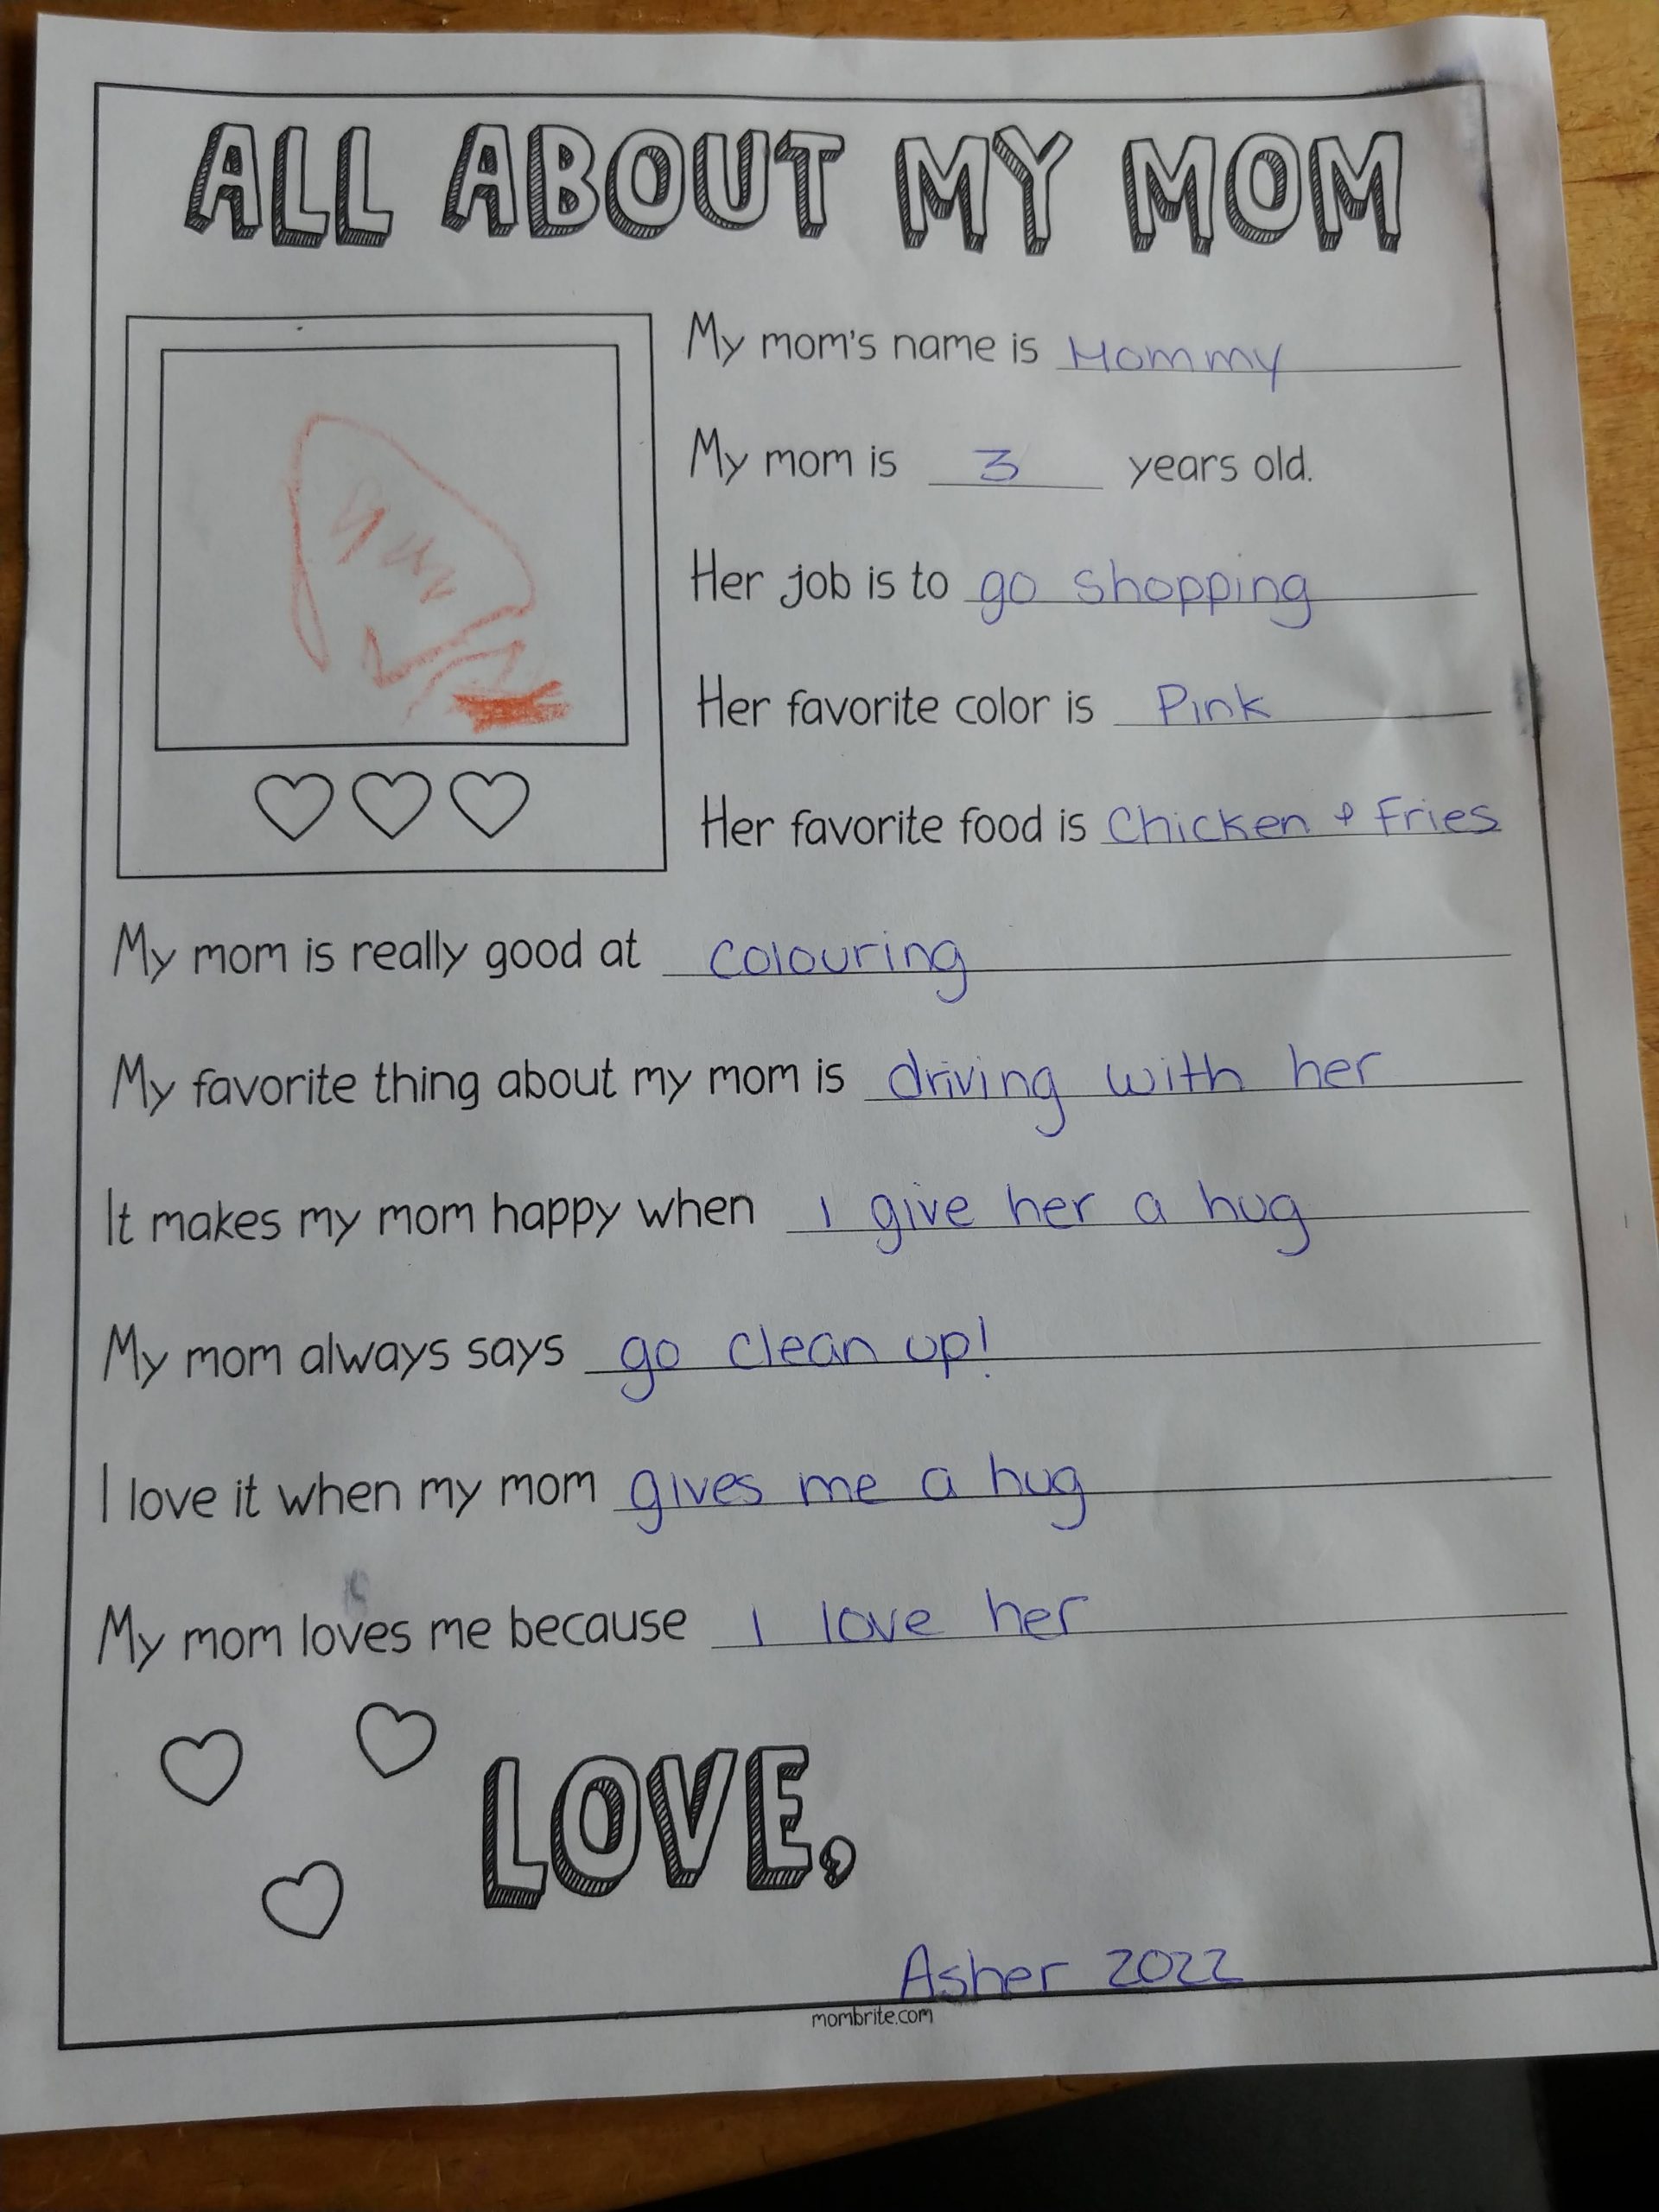 ALL ABOUT MY MOM
My mom's name is Mommy
My mom is 3 years old.
Her job is to go shopping
Her favorite color is Pink
Her favorite food is Chicken & Fries
My mom is really good at colouring
My favorite thing about my mom is driving with her
It makes my mom happy when I give her a hug
My mom always says go clean up!
I love it when my mom gives me a hug
My mom loves me because I love her
LOVE,
Asher 2022
mombrite.com